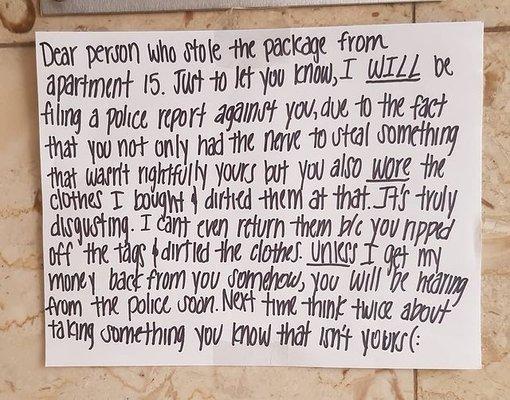 Dear person who stole the package from
apartment 15. Just to let you know, I WILL be
filing a police report against you, due to the fact
that you not only had the nerve to steal something
that wasn't rightfully yours but you also wore the
clothes I bought & dirtied them at that. It's truly
disgusting. I cant even return them b/c you ripped
off the tags & dirtied the clothes. UNLESS I get my
money back from you somehow, you will be hearing
from the police soon. Next time think twice about
taking something you know that isn't yours(: